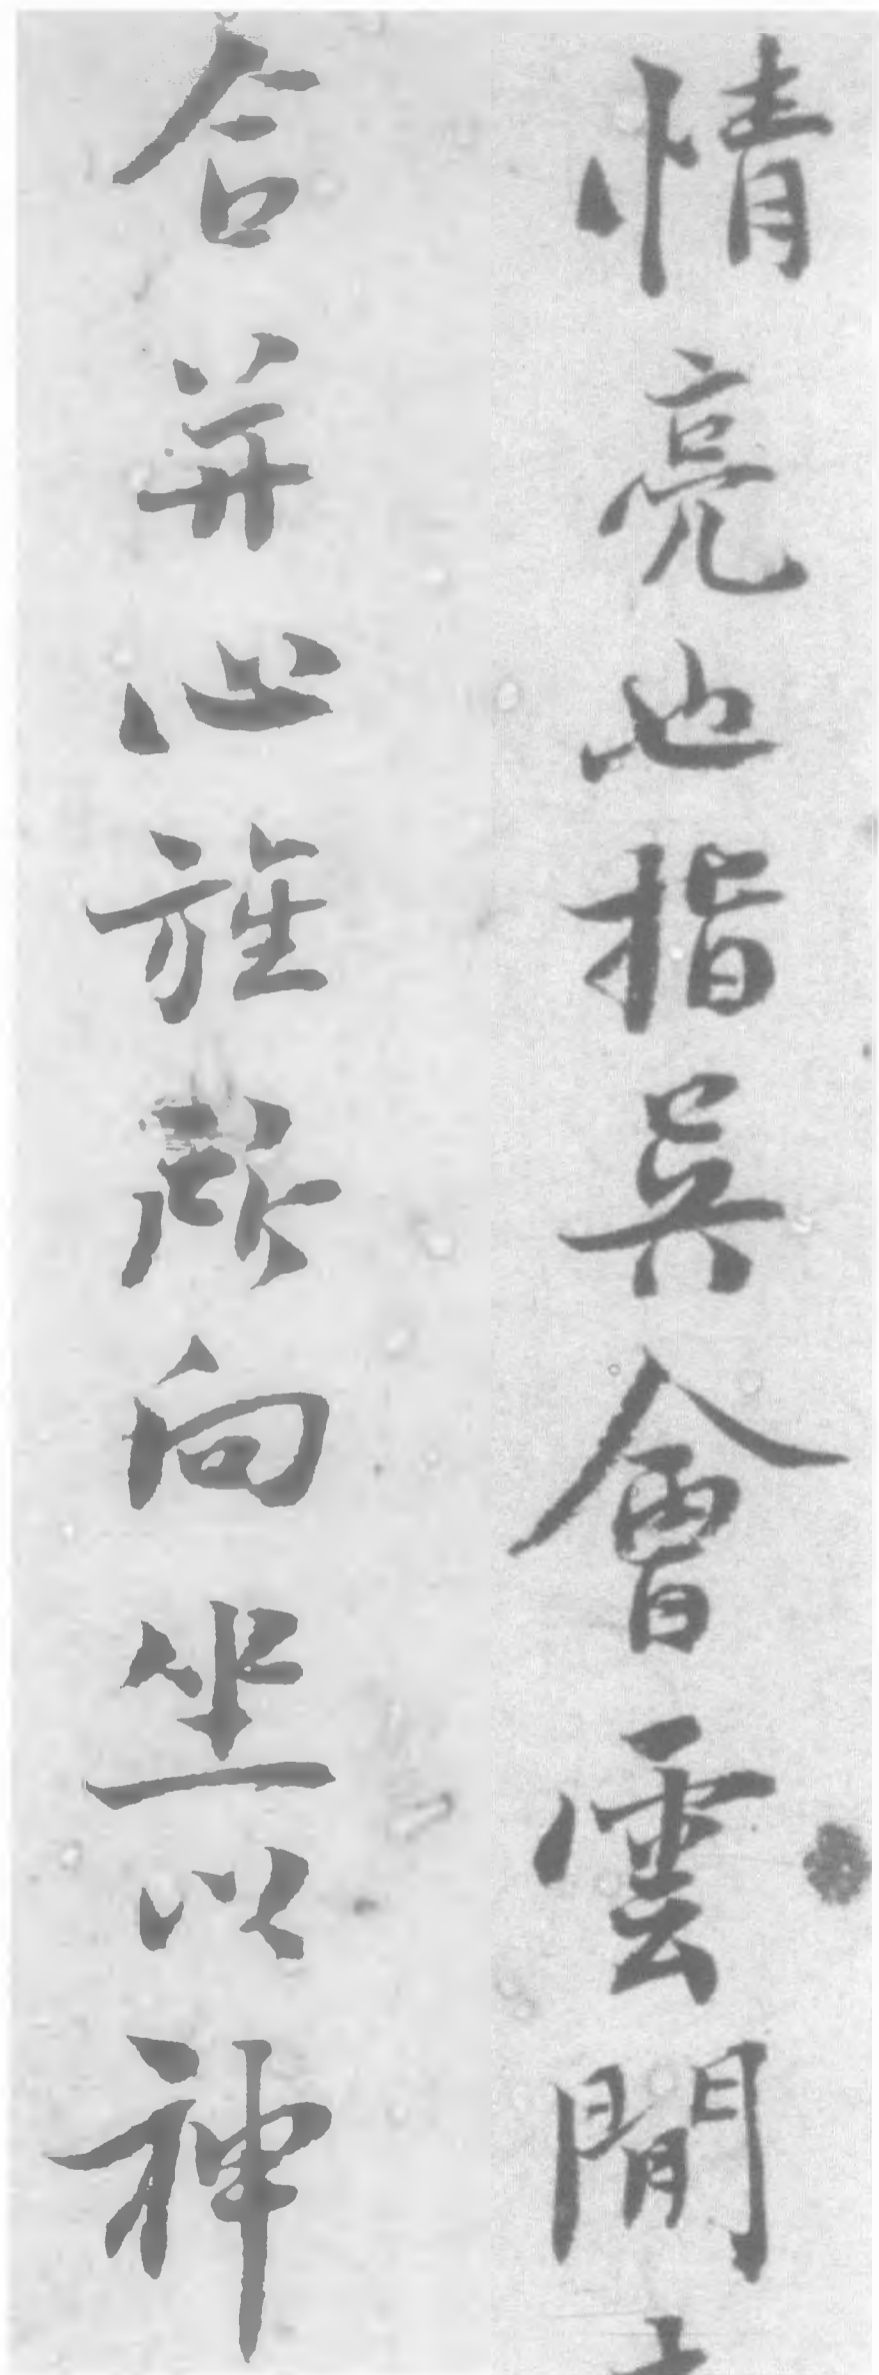 情亮也指吳會雲閒
合并心旌所向坐以神